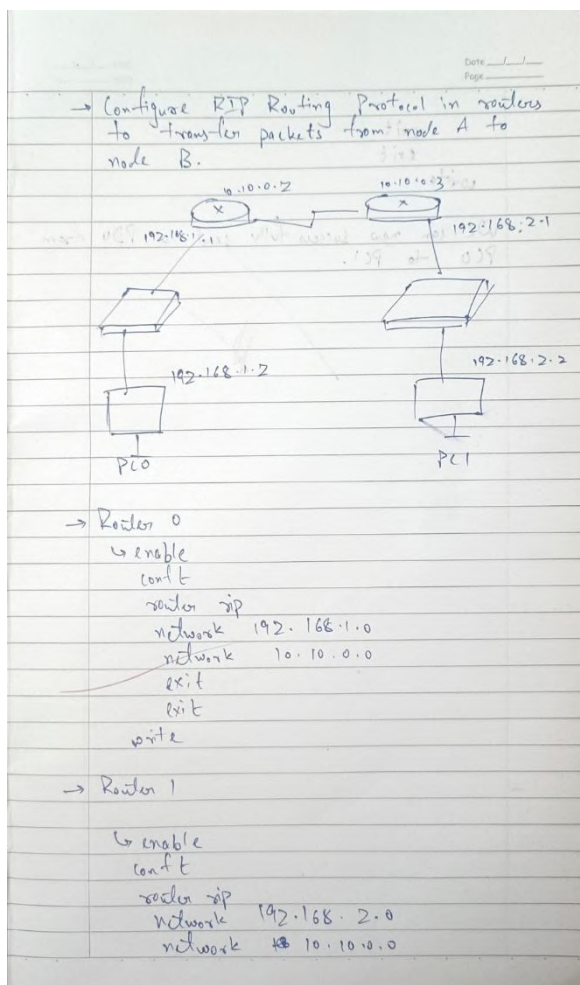 Date
Page
→ Configure RIP Routing Protocol in routers
to transfer packets from node A to
node B.
10.10.0.2
10.10.0.3
x
x
192.168.1.1
192.168.2.1
192.168.1.2
192.168.2.2
PC0
PC1
→ Router 0
↳ enable
conf t
router rip
network 192.168.1.0
network 10.10.0.0
exit
exit
write
→ Router 1
↳ enable
conf t
router rip
network 192.168.2.0
network 10.10.0.0